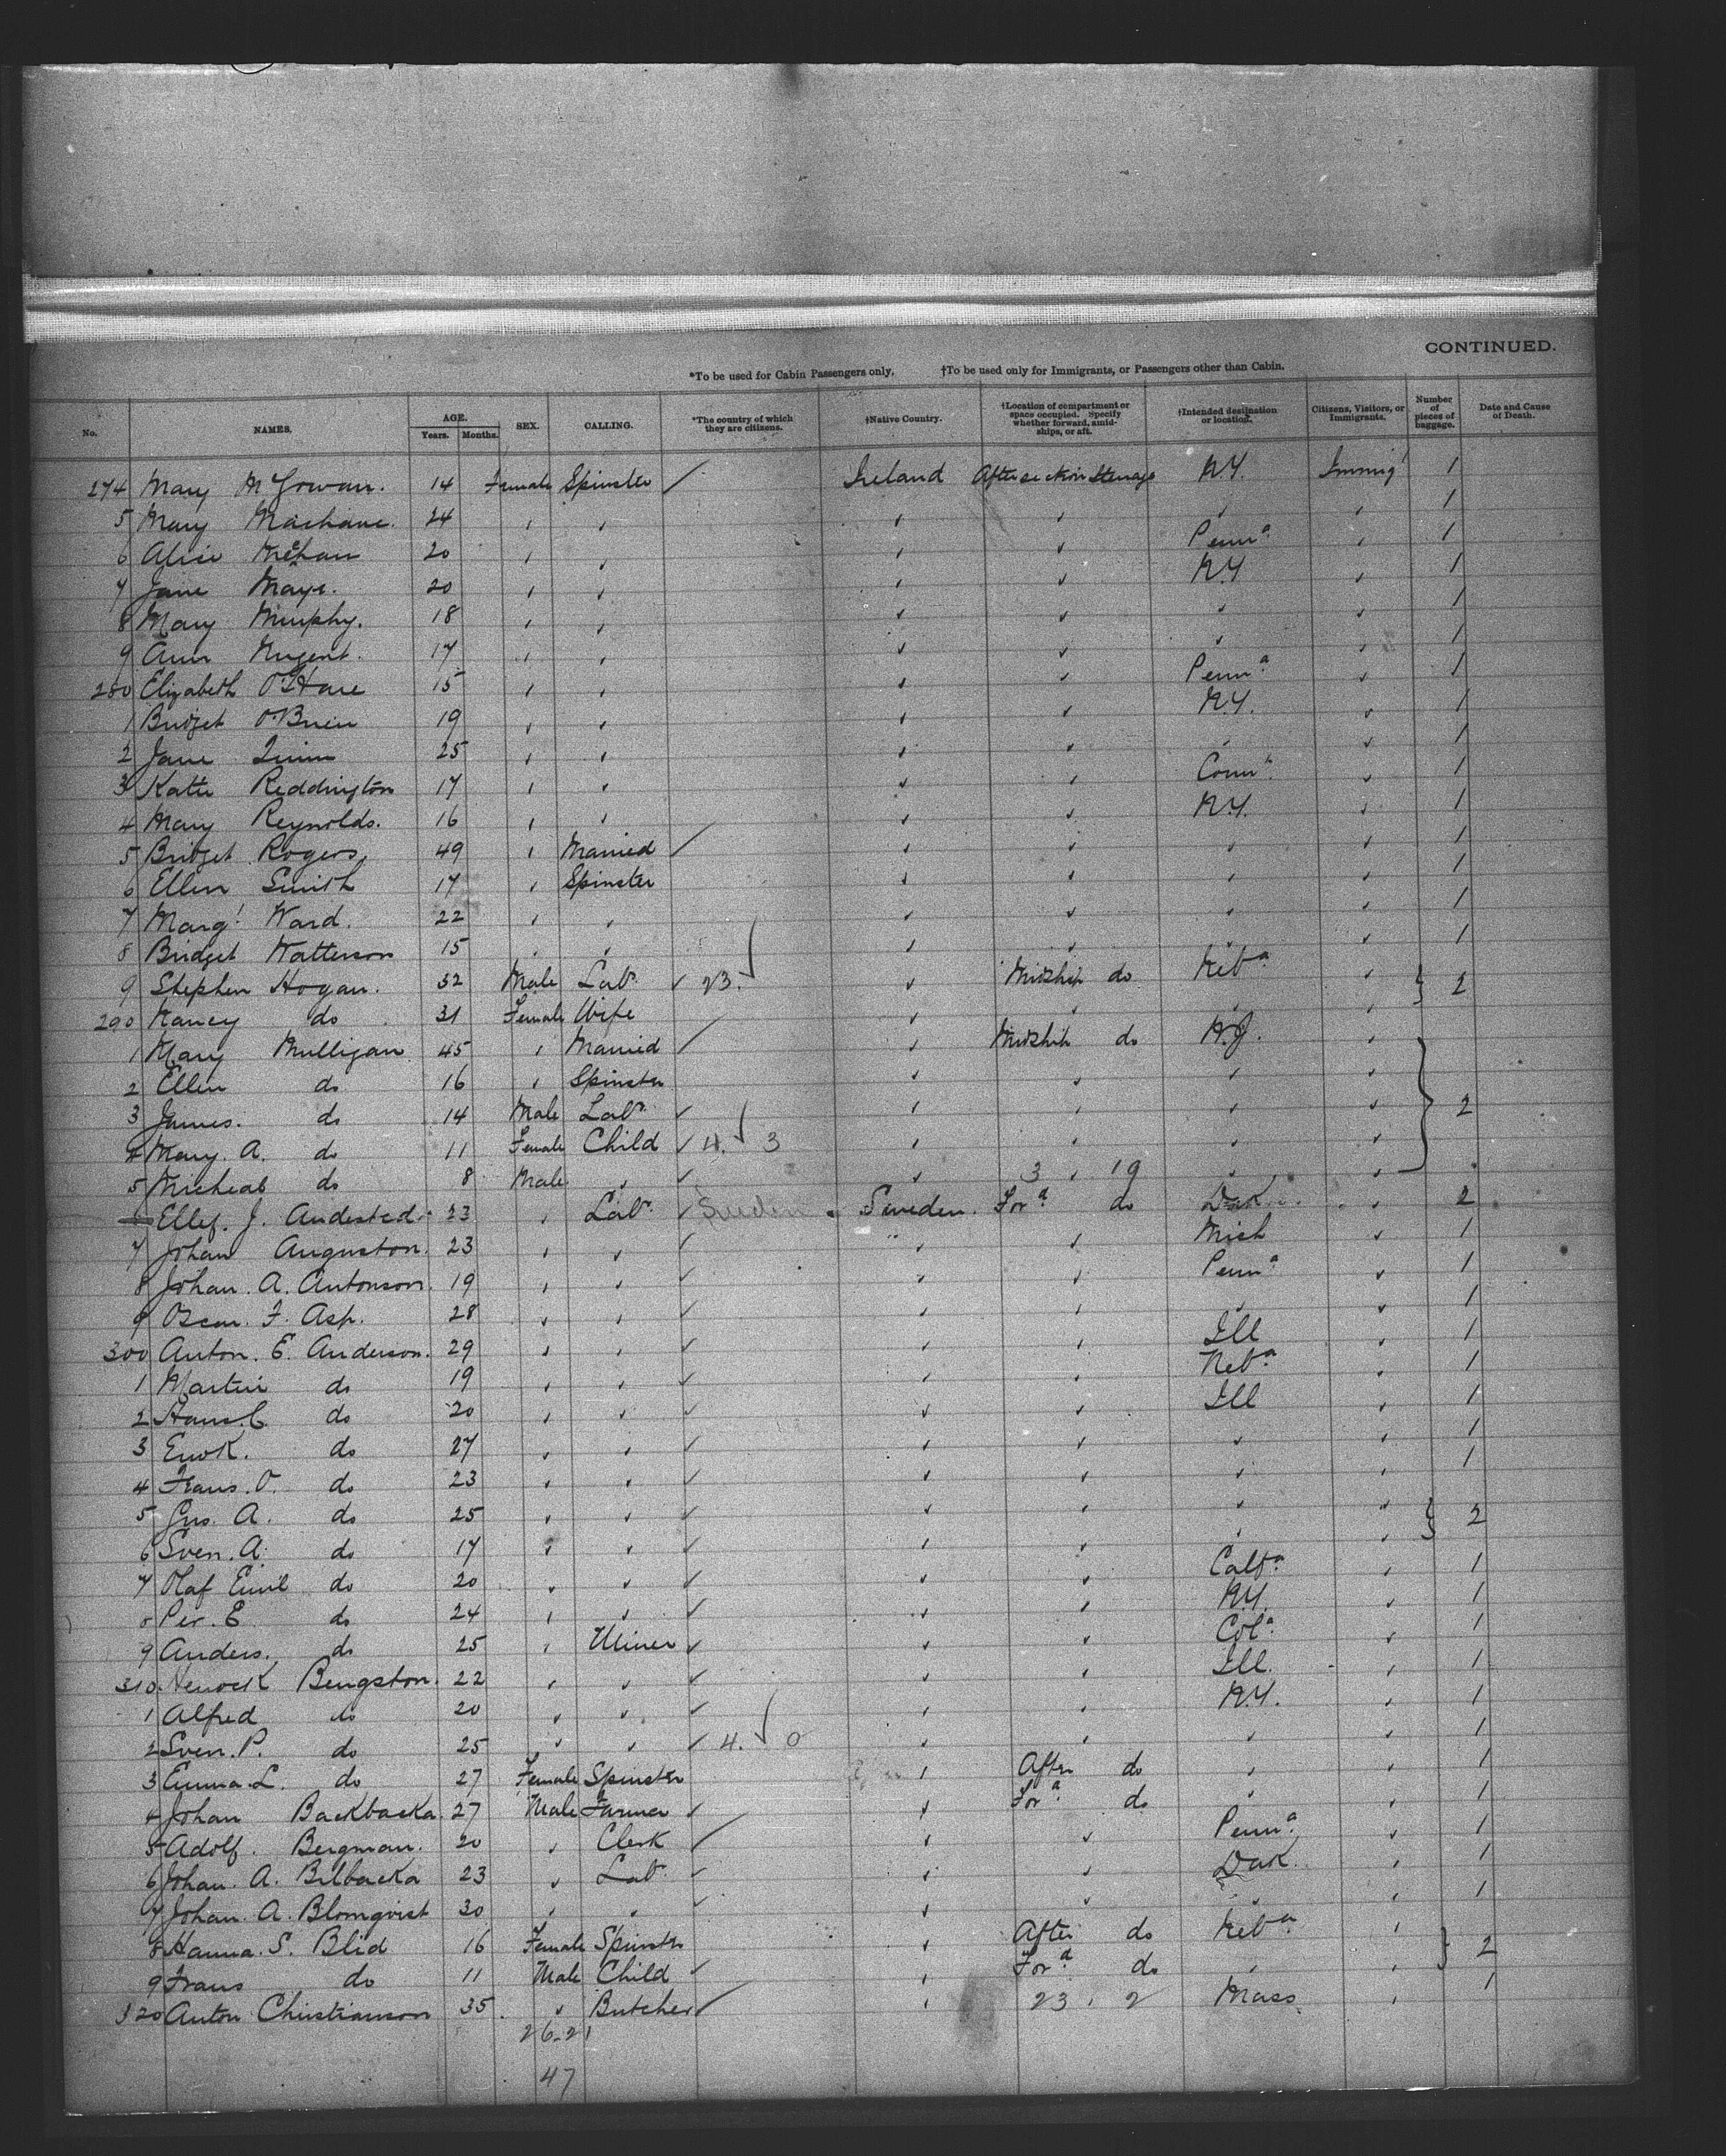 CONTINUED.
*To be used for Cabin Passengers only. †To be used only for Immigrants, or Passengers other than Cabin.
No. NAMES. AGE. Years. Months. SEX. CALLING. *The country of which they are citizens. †Native Country. †Location of compartment or space occupied. Specify whether forward, amidships, or aft. †Intended destination or location. Citizens, Visitors, or Immigrants. Number of pieces of baggage. Date and Cause of Death.
274 Mary McGowan. 14 Female Spinster ✓ Ireland After section Steerage N.Y. Immigt 1
5 Mary Machane. 24 " " " " " " 1
6 Alice Mehan 20 " " " " Penna " 1
7 Jane Maye. 20 " " " " N.Y " 1
8 Mary Murphy. 18 " " " " " " 1
9 Ann Nugent. 17 " " " " " " 1
280 Elizabeth O'Hare 15 " " " " Penna " 1
1 Bridget O'Brien 19 " " " " N.Y. " 1
2 Jane Quinn 25 " " " " " " 1
3 Katie Reddington 17 " " " " Connt " 1
4 Mary Reynolds. 16 " " " " N.Y. " 1
5 Bridget Rogers 49 " Married ✓ " " " " 1
6 Ellen Smith 17 " Spinster " " " " 1
7 Margt Ward. 22 " " " " " " 1
8 Bridget Watterson 15 " " " " " " 1
9 Stephen Hogan. 32 Male Labr ✓ 23. ✓ " Midship do Neba " } 2
290 Nancy do 31 Female Wife " " " "
1 Mary Mulligan 45 " Married ✓ " Midship do N.J. "
2 Ellen do 16 " Spinster " " " "
3 James. do 14 Male Labr ✓ " " " " } 2
4 Mary. A. do 11 Female Child ✓ 4. ✓ 3 " " " "
5 Micheal do 8 Male " ✓ " 3 " 19 " "
Ellef. J. Andersted. 23 " Labr ✓ Sweden Sweden. Ford do Dak. " 2
7 Johan Auguston. 23 " " ✓ " " Mich " 1
8 Johan. A. Antonson. 19 " " ✓ " " Penna " 1
9 Oscar. F. Asp. 28 " " ✓ " " " " 1
300 Anton. E. Anderson. 29 " " ✓ " " Ill " 1
1 Martin do 19 " " ✓ " " Neba " 1
2 Hans. C. do 20 " " ✓ " " Ill " 1
3 Erick. do 27 " " ✓ " " " " 1
4 Frans. O. do 23 " " ✓ " " " " 1
5 Gus. A. do 25 " " ✓ " " " " } 2
6 Sven. A. do 17 " " ✓ " " " "
7 Olaf Emil do 20 " " ✓ " " Calfa " 1
8 Per. E do 24 " " ✓ " " N.Y. " 1
9 Anders. do 25 " Miner ✓ " " Cola " 1
310 Bengston. 22 " " ✓ " " Ill. " 1
1 Alfred do 20 " " ✓ " " N.Y. " 1
2 Sven. P. do 25 " " ✓ 4. ✓ 0 " " " " 1
3 Emma. L. do 27 Female Spinster " After do " " 1
4 Johan Backbacka. 27 Male Farmer ✓ " Ford do " " 1
5 Adolf. Bergman. 20 " Clerk ✓ " " Penna " 1
6 Johan. A. Bilbacka 23 " Labr ✓ " " Dak. " 1
7 Johan. A. Blomqvist 30 " " ✓ " " " " 1
8 Hanna. S. Blid 16 Female Spinster " After do Neba " } 2
9 Frans do 11 Male Child ✓ " Ford do " "
320 Anton Christianson 35 " Butcher ✓ " 23 " 2 Mass. " 1
26-21
47